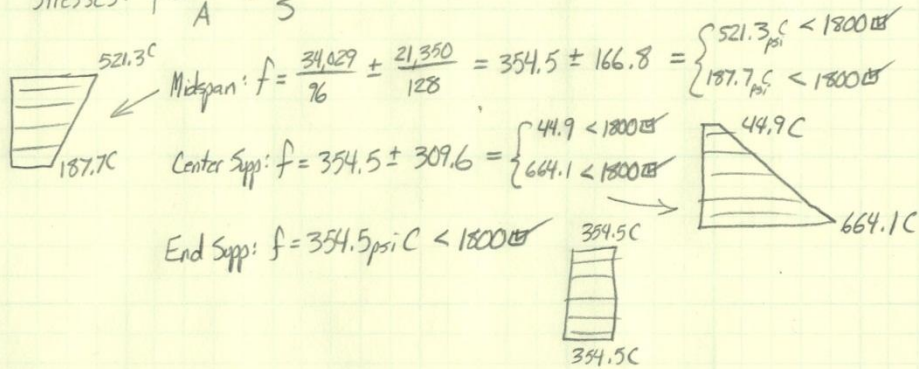 STRESSES: f A S
521.3C
Midspan: f = 34,029/96 ± 21,350/128 = 354.5 ± 166.8 = { 521.3 psi C < 1800 ☑
187.7 psi C < 1800 ☑
187.7C
44.9C
Center Supp: f = 354.5 ± 309.6 = { 44.9 < 1800 ☑
664.1 < 1800 ☑
664.1C
End Supp: f = 354.5 psi C < 1800 ☑
354.5C
354.5C